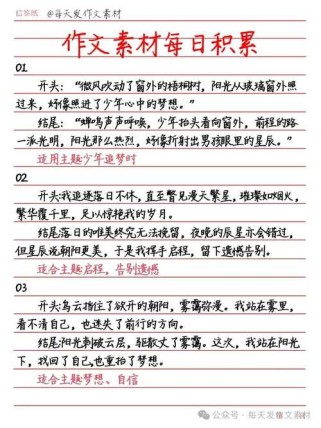 信答纸 @每天发作文素材
作文素材每日积累
01
开头：“微风吹动了窗外的梧桐树，阳光从玻璃窗外照
过来，好像照进了少年心中的梦想。”
结尾：“蝉鸣声声呼唤，少年抬头看向窗外，前程的路
一派光明，阳光那么热烈，好像折射出男孩眼里的星辰。”
适用主题少年追梦时
02
开头:我追逐落日不休，直至瞥见漫天繁星，璀璨如烟火，
繁华霞千里，足以惊艳我的岁月。
结尾落日的唯美终究无法挽留，夜晚的辰星亦会错过，
但星辰说朝阳更美，于是我挥手启程，留下遗憾告别。
适合主题:启程，告别遗憾
03
开头:乌云挡住了欲开的朝阳，雾霭弥漫。我站在雾里，
看不清自己，也迷失了前行的方向。
结尾:阳光刺破云层，驱散丈了雾霭。这次，我站在阳光
下，找回了自己也重拾了梦想。
适合主题:梦想、自信
公众号·每天发作文素材